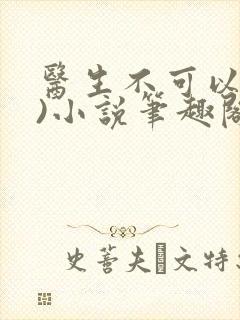 醫生不可以
)小說筆趣閣
史蒈夫文特